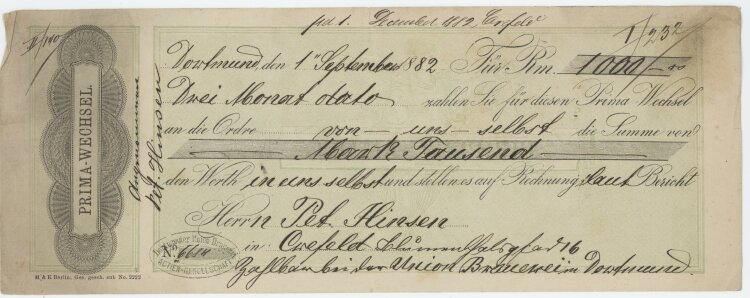 prd 1. Dezember 1882 Crefeld
II/140
I/232
Dortmund, den 1ⁿ September 1882 Für Rm. 1000/–
Drei Monat dato zahlen Sie für diesen Prima Wechsel
an die Ordre von – uns – selbst die Summe von
Mark Tausend
den Werth in uns selbst und stellen es auf Rechnung laut Bericht
Herrn Pet. Hinsen
in Crefeld Blumenthalspfad 16
Zahlbar bei der Union Brauerei in Dortmund.
PRIMA-WECHSEL.
Angenommen
Pet. Hinsen
No. 6614
ACTIEN-GESELLSCHAFT
H & E Berlin. Ges. gesch. sub No. 2222